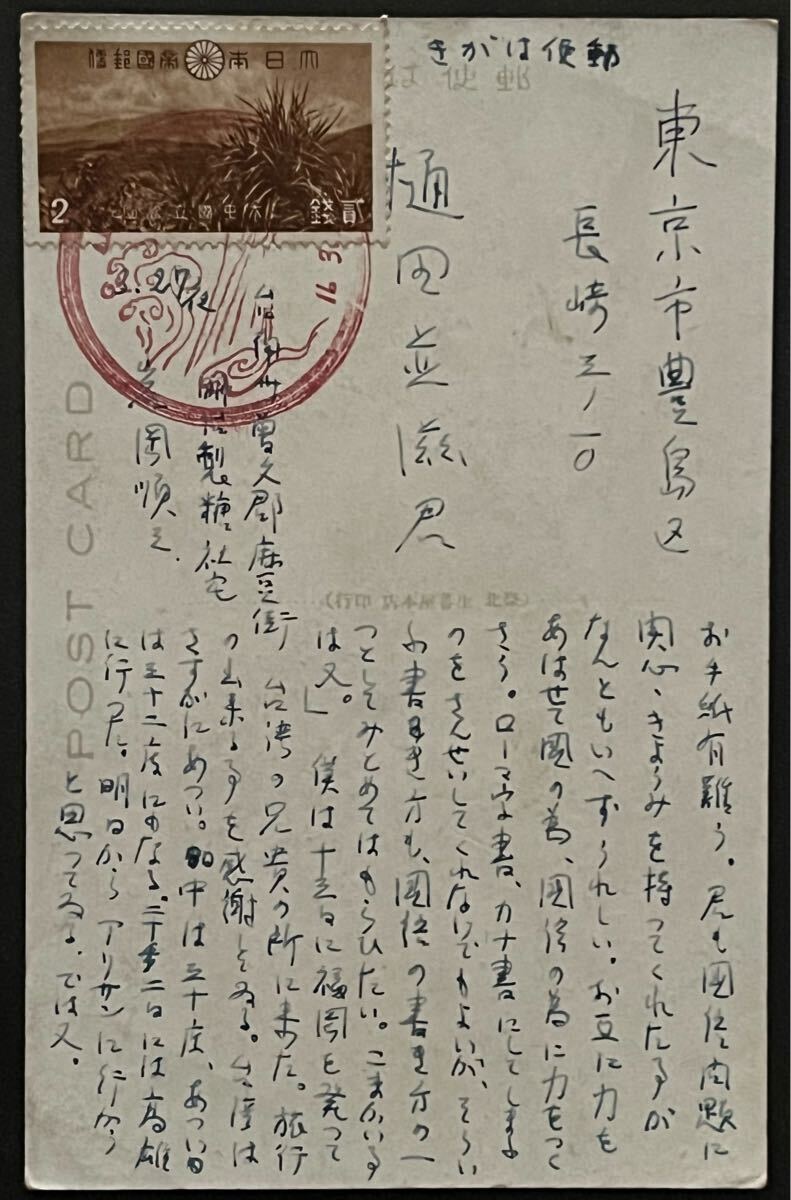 きがは便郵
大日本帝國郵便
大屯國立公園
2
貳錢
16 3
POST CARD
東京市豊島区
長崎三ノ一〇
樋田並滋君
3.27夜
台南州曽文郡麻豆街
明治製糖社宅
岡順之
お手紙有難う。君も國信问題に
関心、きょうみを持ってくれた事が
なんともいへずうれしい。お互に力を
あはせて國の為、國信の為に力をつく
さう。ローマ字書、カナ書にしてしまふ
のをさんせいしてくれないでもよいが、そうい
ふ書き方も、國信の書き方の一
つとしてみとめてはもらひたい。こまかい事
は又。」 僕は十三日に福岡を発って
台湾の兄貴の所に来た。旅行
の出来る事を感謝してゐる。台湾は
さすがにあつい。日中は三十度、あつい日
は三十二度にもなる。二十二日には高雄
に行った。明日からアリサンに行かう
と思ってゐる。では又。